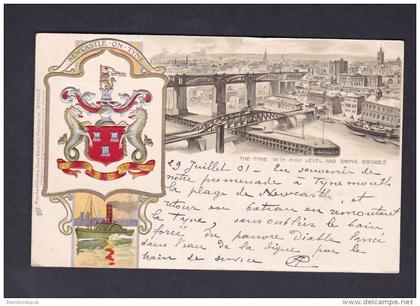 NEWCASTLE-ON-TYNE
THE TYNE WITH HIGH LEVEL AND SWING BRIDGES
29 Juillet 01 - En souvenir de
notre promenade à Tynemouth
la plage de Newcastle, et
retour en bateau en remontant
la Tyne, sans oublier le bain
forcé du pauvre Diable lancé
dans l'eau de la digue par le
train de service
Bandedepub
delcampe.net